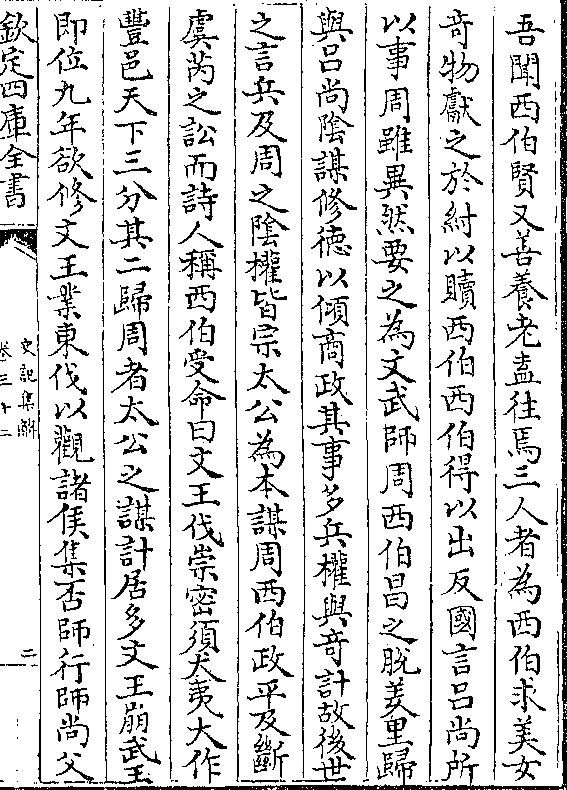 吾聞西伯賢又善養老盍往焉三人者為西伯求美女
奇物獻之於紂以贖西伯西伯得以出反國言吕尚所
以事周雖異然要之為文武師周西伯昌之脱羑里歸
與吕尚隂謀修徳以傾商政其事多兵權與奇計故後世
之言兵及周之隂權皆宗太公為本謀周西伯政平及斷
虞芮之訟而詩人稱西伯受命曰文王伐崇宻須犬夷大作
豐邑天下三分其二歸周者太公之謀計居多文王崩武王
即位九年欲修文王業東伐以觀諸侯集否師行師尚父
欽定四庫全書
史記集解
卷三十二
二